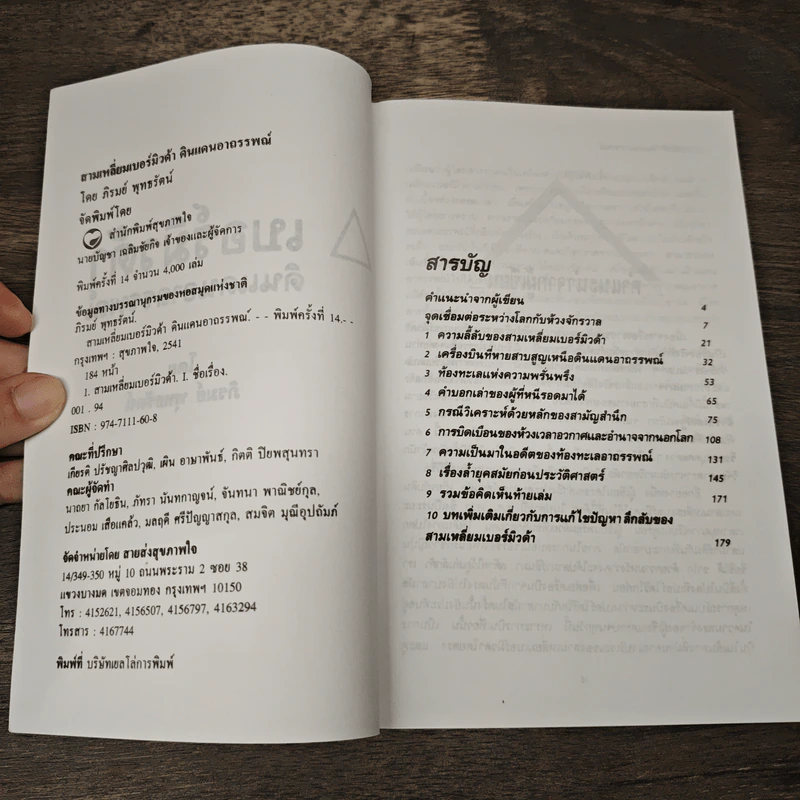 สามเหลี่ยมเบอร์มิวด้า ดินแดนอาถรรพณ์
โดย ภิรมย์ พุทธรัตน์
จัดพิมพ์โดย
สำนักพิมพ์สุขภาพใจ
นายบัญชา เฉลิมชัยกิจ เจ้าของและผู้จัดการ
พิมพ์ครั้งที่ 14 จำนวน 4,000 เล่ม
ข้อมูลทางบรรณานุกรมของหอสมุดแห่งชาติ
ภิรมย์ พุทธรัตน์.
สามเหลี่ยมเบอร์มิวด้า ดินแดนอาถรรพณ์. - - พิมพ์ครั้งที่ 14.- -
กรุงเทพฯ : สุขภาพใจ, 2541
184 หน้า
1. สามเหลี่ยมเบอร์มิวด้า. I. ชื่อเรื่อง.
001 . 94
ISBN : 974-7111-60-8
คณะที่ปรึกษา
เกียรติ ปรัชญาศิลปวุฒิ, เผิน อาษาพันธ์, กิตติ ปิยพสุนทรา
คณะผู้จัดทำ
นาถยา กัลโยธิน, ภัทรา นันทกาญจน์, จันทนา พาณิชย์กุล,
ประนอม เสือแคล้ว, มลฤดี ศรีปัญญาสกุล, สมจิต มุณีอุปถัมภ์
จัดจำหน่ายโดย สายส่งสุขภาพใจ
14/349-350 หมู่ 10 ถนนพระราม 2 ซอย 38
แขวงบางมด เขตจอมทอง กรุงเทพฯ 10150
โทร : 4152621, 4156507, 4156797, 4163294
โทรสาร : 4167744
พิมพ์ที่ บริษัทเยลโล่การพิมพ์
สารบัญ
คำแนะนำจากผู้เขียน 4
จุดเชื่อมต่อระหว่างโลกกับห้วงจักรวาล 7
1 ความลี้ลับของสามเหลี่ยมเบอร์มิวด้า 21
2 เครื่องบินที่หายสาบสูญเหนือดินแดนอาถรรพณ์ 32
3 ท้องทะเลแห่งความพรั่นพรึง 53
4 คำบอกเล่าของผู้ที่หนีรอดมาได้ 65
5 กรณีวิเคราะห์ด้วยหลักของสามัญสำนึก 75
6 การบิดเบือนของห้วงเวลาอวกาศและอำนาจจากนอกโลก 108
7 ความเป็นมาในอดีตของท้องทะเลอาถรรพณ์ 131
8 เรื่องล้ำยุคสมัยก่อนประวัติศาสตร์ 145
9 รวมข้อคิดเห็นท้ายเล่ม 171
10 บทเพิ่มเติมเกี่ยวกับการแก้ไขปัญหา ลึกลับของ
สามเหลี่ยมเบอร์มิวด้า 179